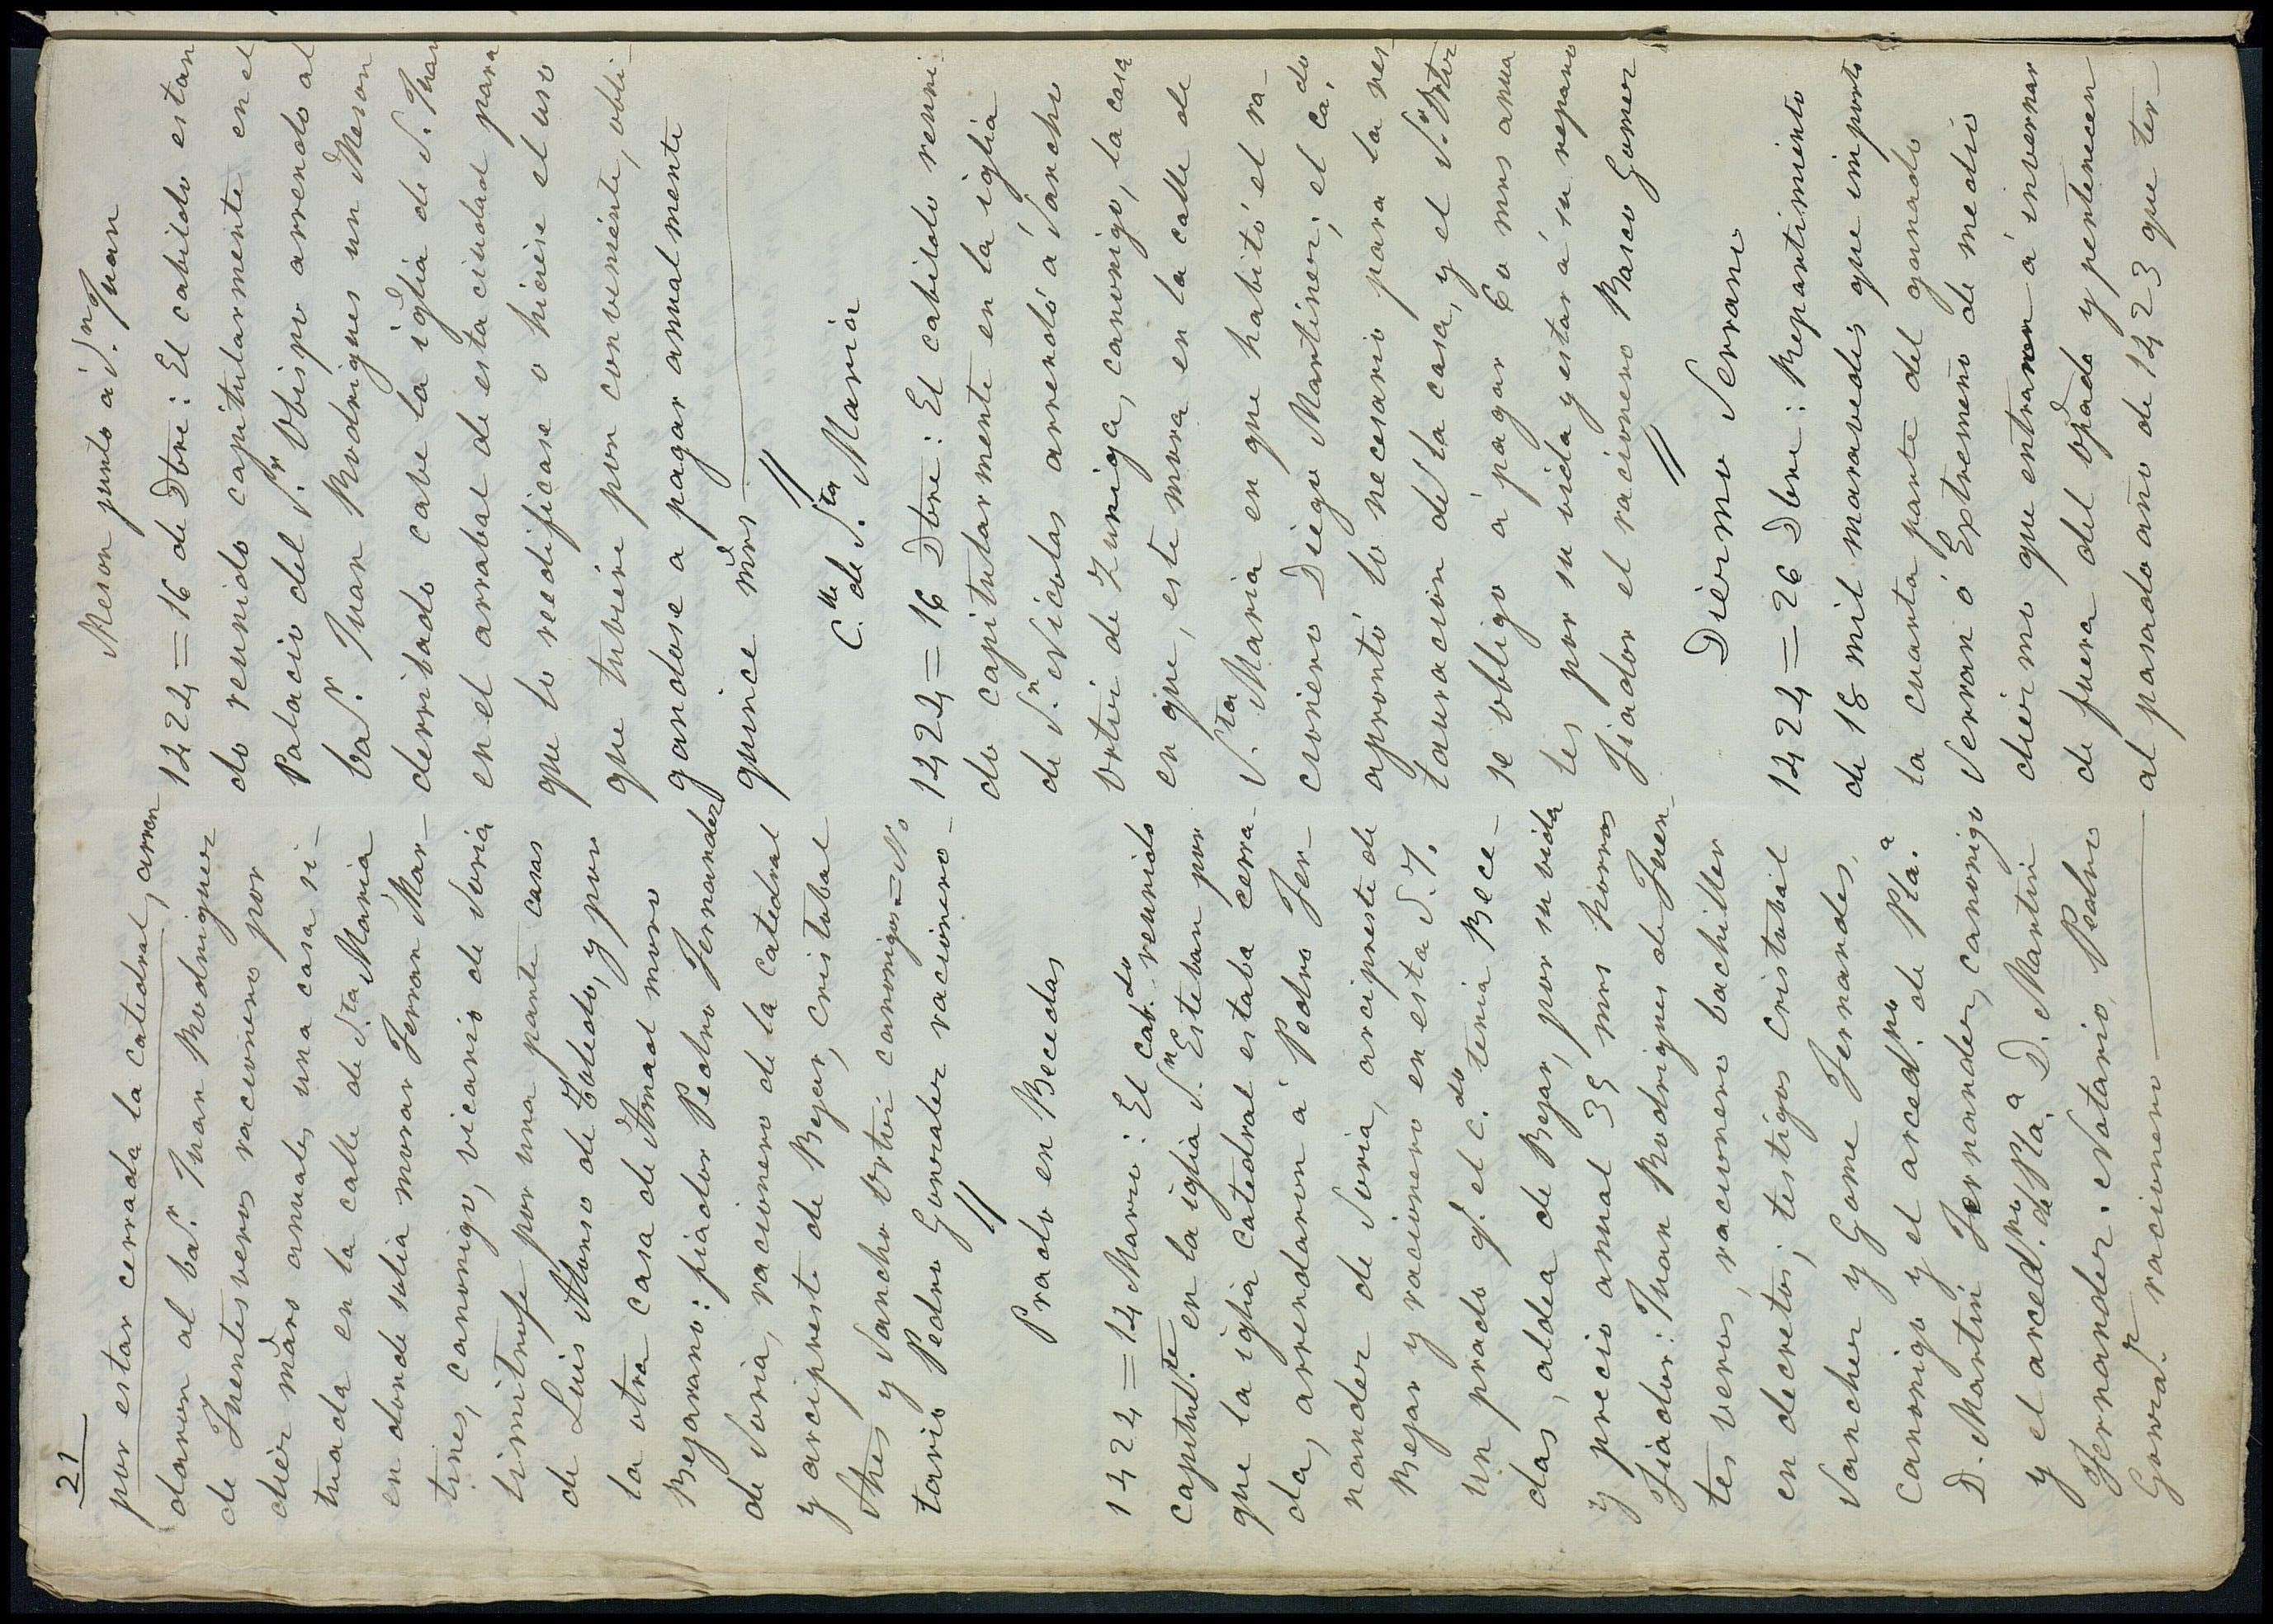 21
por estar cerrada la catedral, arren
daron al baʳ. Juan Rodriguez
de Fuentesveros racionero por
diez mrs anuales una casa si-
tuada en la calle de S.ta Maria
en donde solia morar Ferran Mar-
tines, canonigo, vicario de Soria
limitrofe por una parte casas
de Luis Alonso de Toledo, y por
la otra casa de Amad moro
Bejarano: fiador Pedro Fernandez
de Soria, racionero de la catedral
y arcipreste de Bejar, Cristobal
Shes y Sancho Ortiz canonigos = No
tario Pedro Gonzalez racionero-
//
Prado en Becedas
1424 = 14 Marzo: El cab.do reunido
capitul.te en la iglia S.n Esteban por
que la iglia catedral estaba cerra-
da, arrendaron a Pedro Fer-
nandez de Soria, arcipreste de
Bejar y racionero en esta S. Y.
un prado q.e el C.do tenia Bece-
das, aldea de Bejar, por su vida
y precio anual 35 mrs horros
Fiador: Juan Rodrigues de Fuen-
tes veros, racionero bachiller
en decretos; testigos Cristobal
Sanchez y Gome Fernandes,
canonigo y el arced.no de Pla.a
D. Martin Fernandez, canonigo
y el arced.no de Pla.a D. Martin
Fernandez. Notario, Pedro
Gonza.z racionero
Meson junto á S.n Juan
1424 = 16 de Dbre: El cabildo estan
do reunido capitularmente en el
Palacio del S.r Obispo arrendo al
ba.r Juan Rodrigues un Meson
derribado cabe la iglia de S. Juan
en el arrabal de esta ciudad para
que lo reedificase o hiciese el uso
que tubiere por conveniente, obli-
gandose a pagar anualmente
quince mrs
//
C.lle de S.ta Maria
1424 = 16 Dbre: El cabildo reuni-
do capitularmente en la iglia
de S.n Nicolas arrendó á Sancho
Ortiz de Zuniga, canonigo, la casa
en que, este mora en la calle de
S.ta Maria en que habitó el ra-
cionero Diego Martinez; el ca.do
aprontó lo necesario para la res-
tauracion de la casa, y el S.r Ortiz
se obligo á pagar 60 mrs anua
les por su vida y estar á su reparo
Fiador el racionero Basco Gomez
//
Diezmo Serrano
1424 = 26 Dbre: Repartimiento
de 18 mil maravedis que importo
la cuarta parte del ganado
Serran ó Extremeño de medio
diezmo que entraron á invernar
de fuera del opado y pertenecen
al pasado año de 1423 que ter-